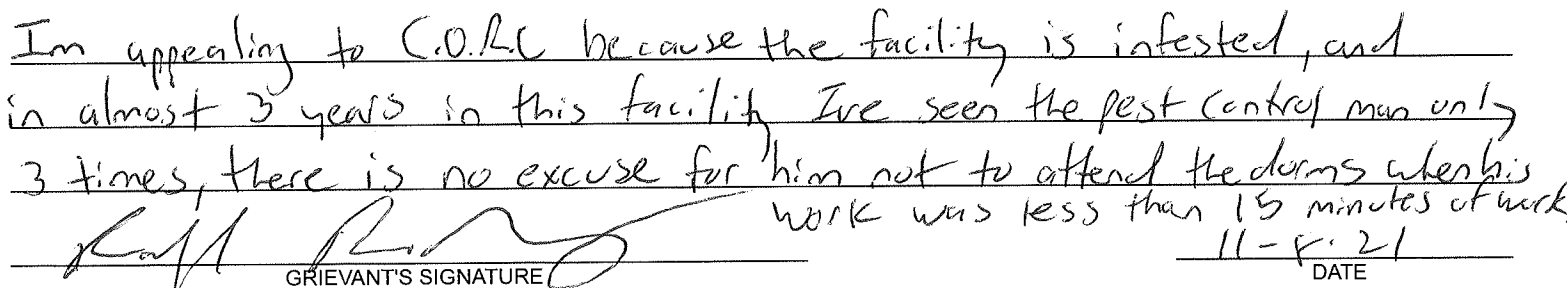 Im appealing to C.O.R.C because the facility is infested, and
in almost 3 years in this facility Ive seen the pest control man only
3 times, there is no excuse for him not to attend the dorms when his
work was less than 15 minutes of work
11-8-21
GRIEVANT'S SIGNATURE
DATE